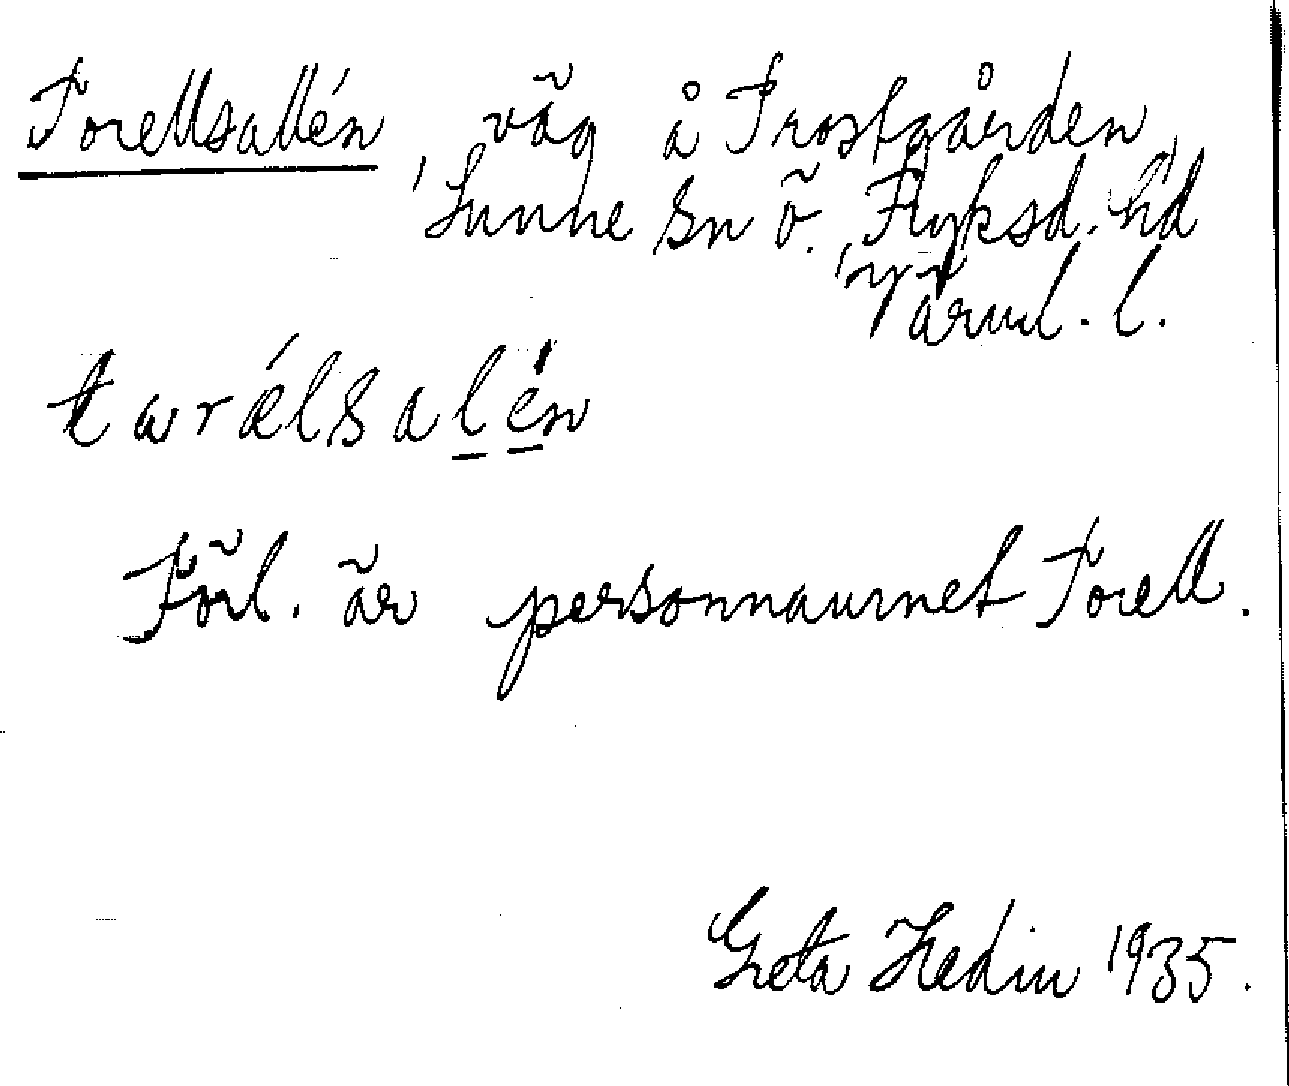 Torellsallén, väg å Prostgården,
Sunne sn Ö. Fryksd. hd
Värml. l.
tωrǽlsalén
Förl. är personnamnet Torell.
Greta Hedin 1935.